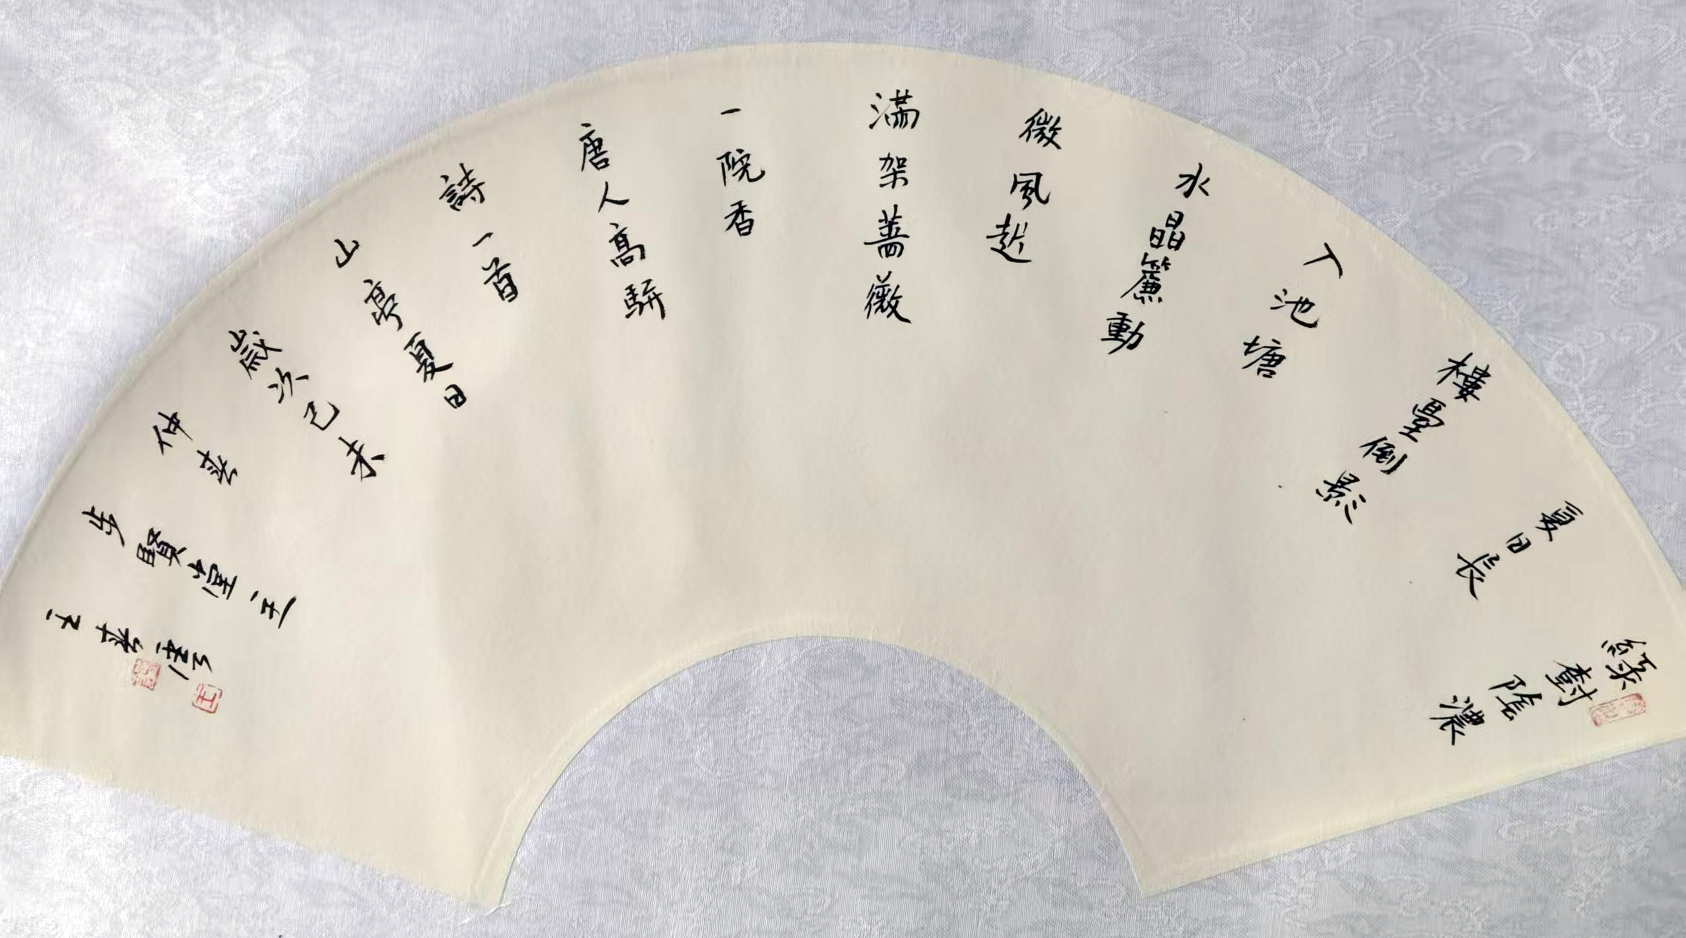 綠樹陰濃
夏日長
樓臺倒影
入池塘
水晶簾動
微風起
滿架薔薇
一院香
唐人高駢
詩一首
山亭夏日
歲次己未
仲春
步賢堂主
王春